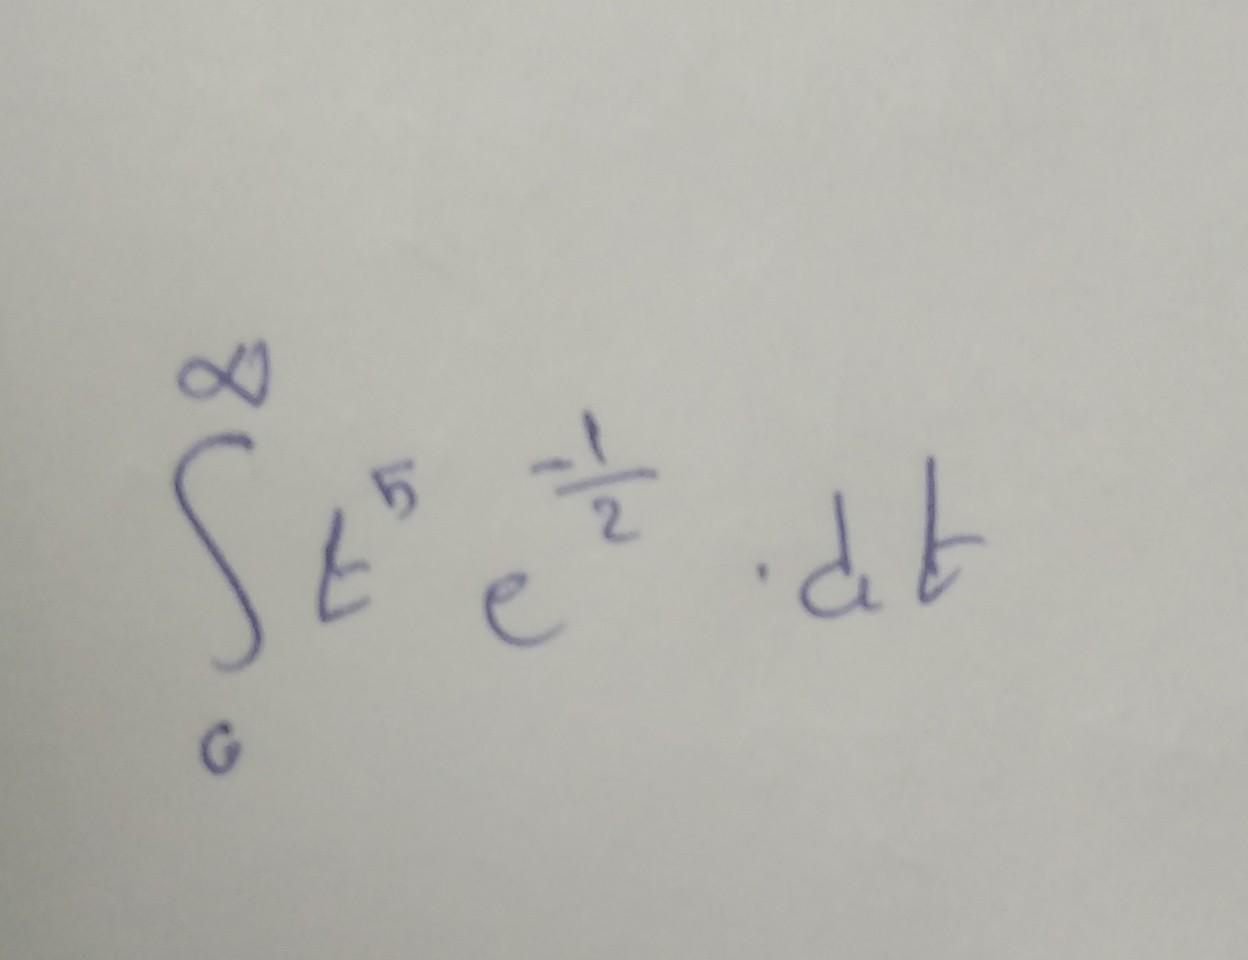 ∫₀^∞ t⁵ e^{-1/2} · dt